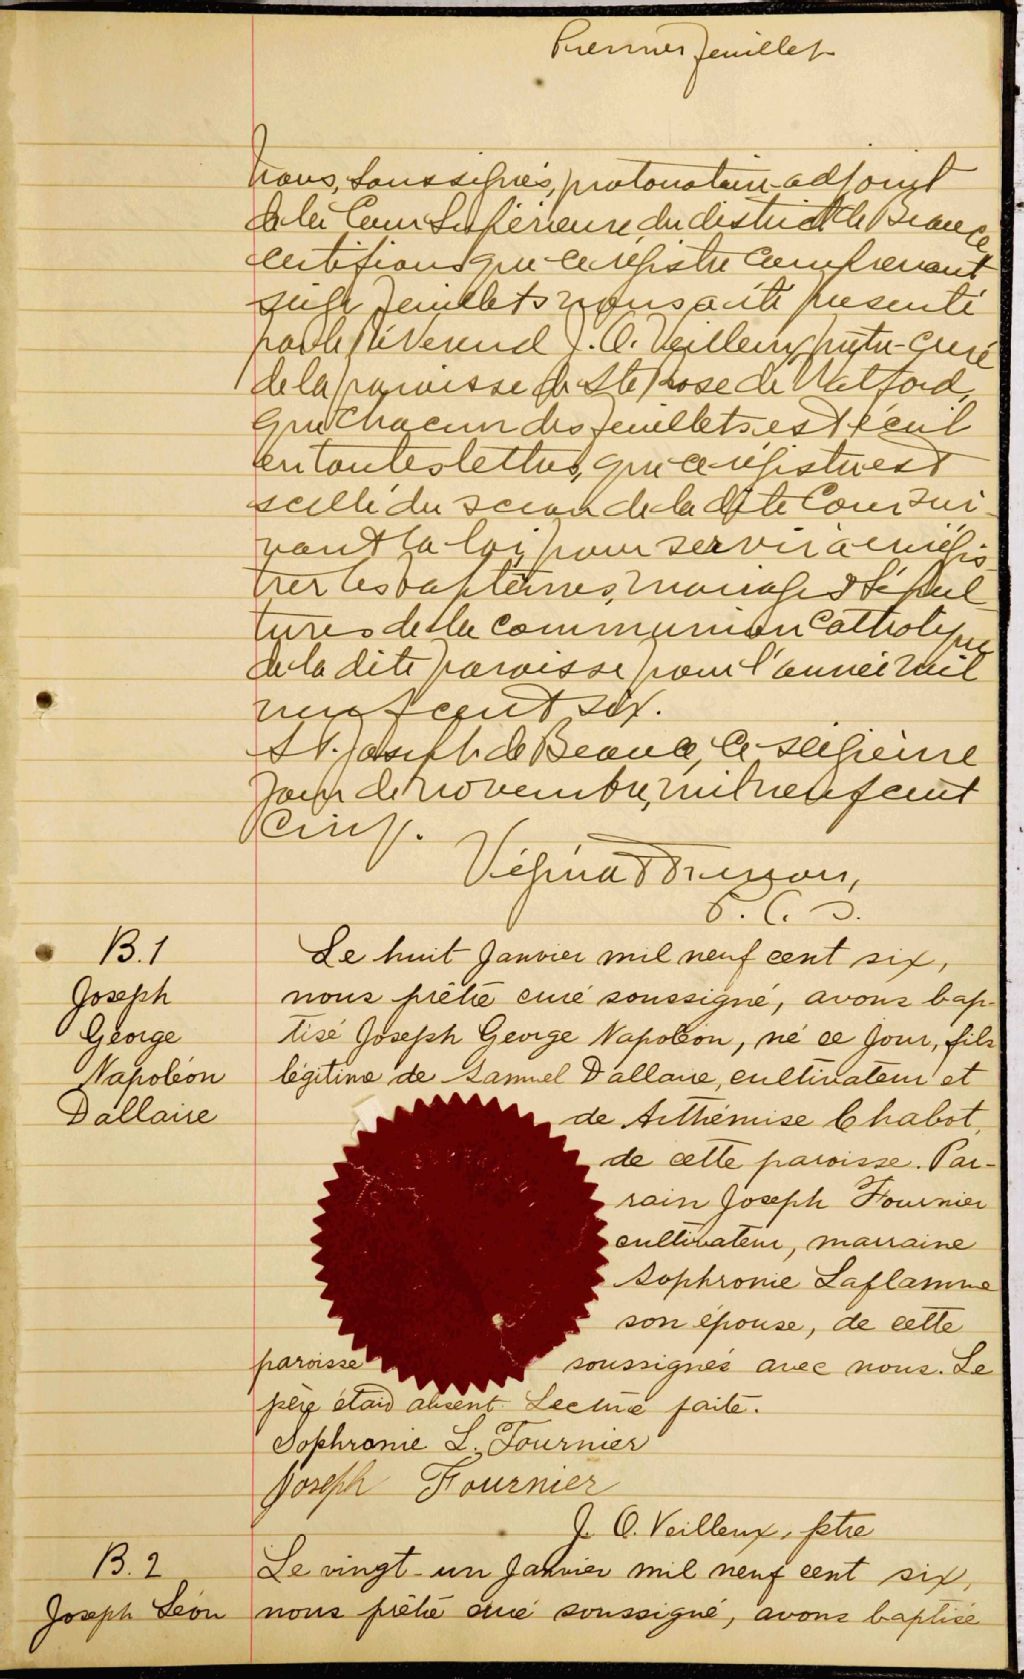 Premier feuillet
Nous, soussignés, protonotaire-adjoint
de la Cour Supérieure du district de Beauce
certifions que ce régistre comprenant
seize feuillets nous a été présenté
par le Révérend J. O. Veilleux, prêtre-curé
de la paroisse de Ste Rose de Watford,
que chacun des feuillets est écrit
en toutes lettres, que ce régistre est
scellé du sceau de la dite Cour sui-
vant la loi, pour servir à enrégis-
trer les baptêmes, mariages & sépul-
tures de la communion Catholique
de la dite paroisse pour l'année mil
neuf cent six.
St. Joseph de Beauce, ce seizième
jour de novembre, mil neuf cent
cinq.
Vézina
P. C. S.
B. 1
Joseph
George
Napoléon
Dallaire
Le huit Janvier mil neuf cent six,
nous prêtre curé soussigné, avons bap-
tisé Joseph George Napoléon, né ce jour, fils
légitime de Samuel Dallaire, cultivateur et
de Arthémise Chabot,
de cette paroisse. Par-
rain Joseph Fournier
cultivateur, marraine
Sophronie Laflamme
son épouse, de cette
paroisse soussignés avec nous. Le
père était absent. Lecture faite.
Sophronie L. Fournier
Joseph Fournier
J. O. Veilleux, ptre
B. 2
Joseph Léon
Le vingt-un Janvier mil neuf cent six,
nous prêtre curé soussigné, avons baptisé